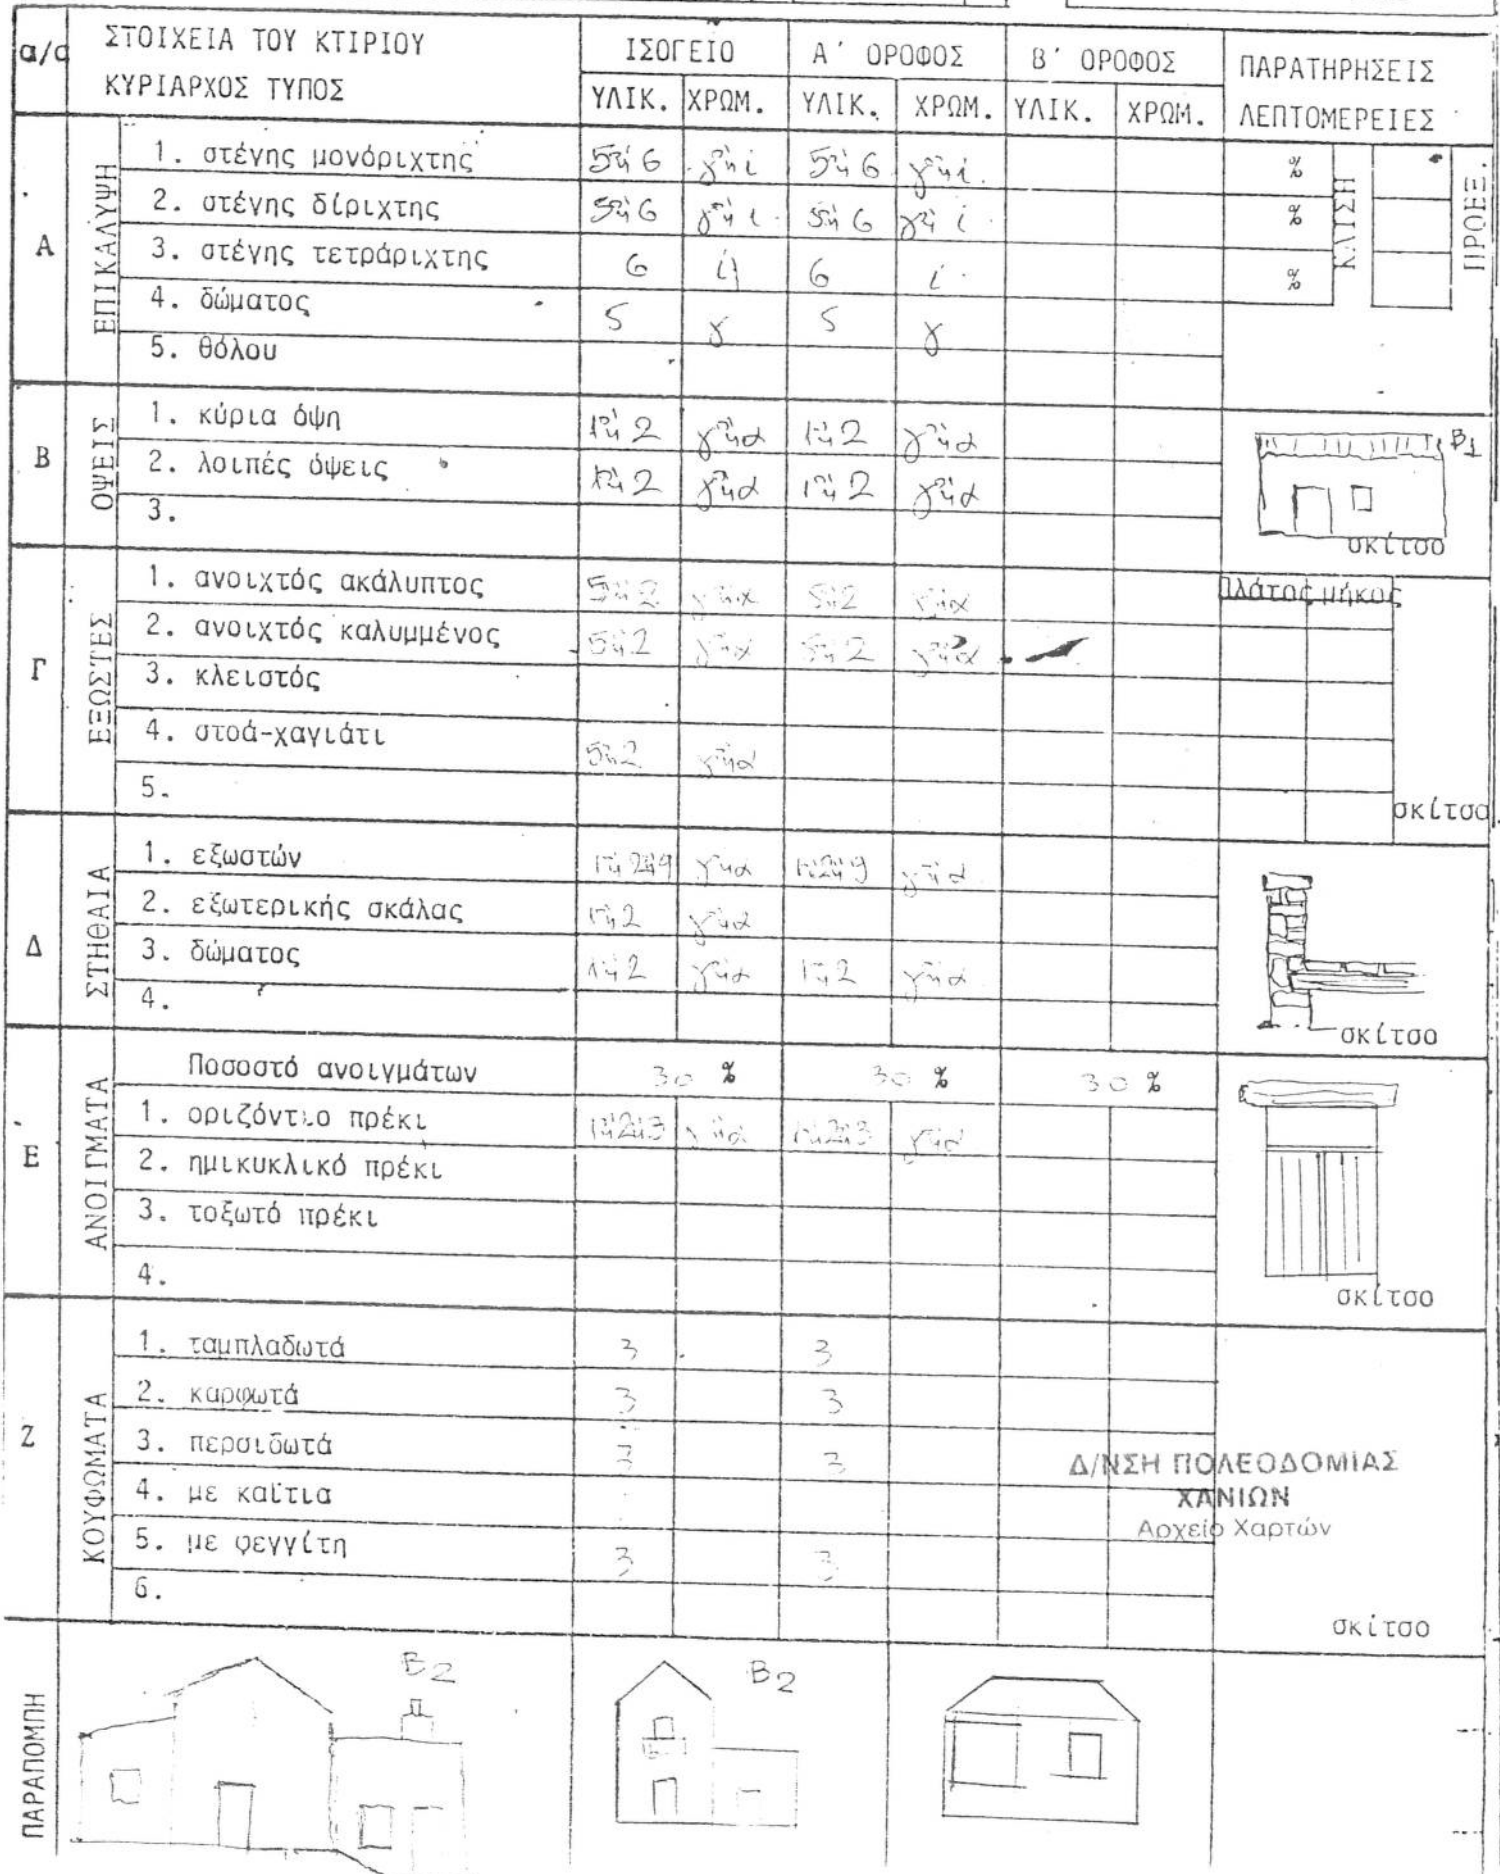 α/α ΣΤΟΙΧΕΙΑ ΤΟΥ ΚΤΙΡΙΟΥ ΙΣΟΓΕΙΟ Α΄ ΟΡΟΦΟΣ Β΄ ΟΡΟΦΟΣ ΠΑΡΑΤΗΡΗΣΕΙΣ
ΚΥΡΙΑΡΧΟΣ ΤΥΠΟΣ ΥΛΙΚ. ΧΡΩΜ. ΥΛΙΚ. ΧΡΩΜ. ΥΛΙΚ. ΧΡΩΜ. ΛΕΠΤΟΜΕΡΕΙΕΣ
Α ΕΠΙΚΑΛΥΨΗ
1. στέγης μονόριχτης 5ή6 γήι 5ή6 γήι % ΚΛΙΣΗ ΠΡΟΕΞ.
2. στέγης δίριχτης 5ή6 γήι 5ή6 γήι %
3. στέγης τετράριχτης 6 6 ι %
4. δώματος 5 γ 5 γ
5. θόλου
Β ΟΨΕΙΣ
1. κύρια όψη 1ή2 γήα 1ή2 γήα Β1
2. λοιπές όψεις 1ή2 γήα 1ή2 γήα
3.
σκίτσο
Γ ΕΞΩΣΤΕΣ
1. ανοιχτός ακάλυπτος 5ή2 γήα 5ή2 γήα πλάτος μήκος
2. ανοιχτός καλυμμένος 5ή2 γήα 5ή2 γήα
3. κλειστός
4. στοά-χαγιάτι 5ή2 γήα
5.
σκίτσο
Δ ΣΤΗΘΑΙΑ
1. εξωστών 1ή2ή9 γήα 1ή2ή9 γήα
2. εξωτερικής σκάλας 1ή2 γήα
3. δώματος 1ή2 γήα 1ή2 γήα
4.
σκίτσο
Ε ΑΝΟΙΓΜΑΤΑ
Ποσοστό ανοιγμάτων 30 % 30 % 30 %
1. οριζόντιο πρέκι 1ή2ή3 γήα 1ή2ή3 γήα
2. ημικυκλικό πρέκι
3. τοξωτό πρέκι
4.
σκίτσο
Ζ ΚΟΥΦΩΜΑΤΑ
1. ταμπλαδωτά 3 3
2. καρφωτά 3 3
3. περσιδωτά 3 3
4. με καΐτια
5. με φεγγίτη 3 3
6.
Δ/ΝΣΗ ΠΟΛΕΟΔΟΜΙΑΣ
ΧΑΝΙΩΝ
Αρχείο Χαρτών
σκίτσο
ΠΑΡΑΠΟΜΠΗ Β2 Β2